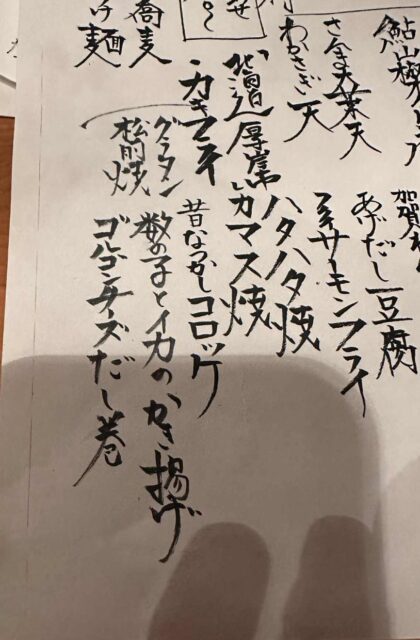 鮎
さんま大葉天
わかさぎ天
せ
蕎麦
け麺
加賀
あげだし豆腐
サーモンフライ
ハタハタ焼
カマス焼
北海道厚岸
昔なつかしコロッケ
グラタン
松前焼
数の子とイカのかき揚げ
ゴルゴンチーズだし巻